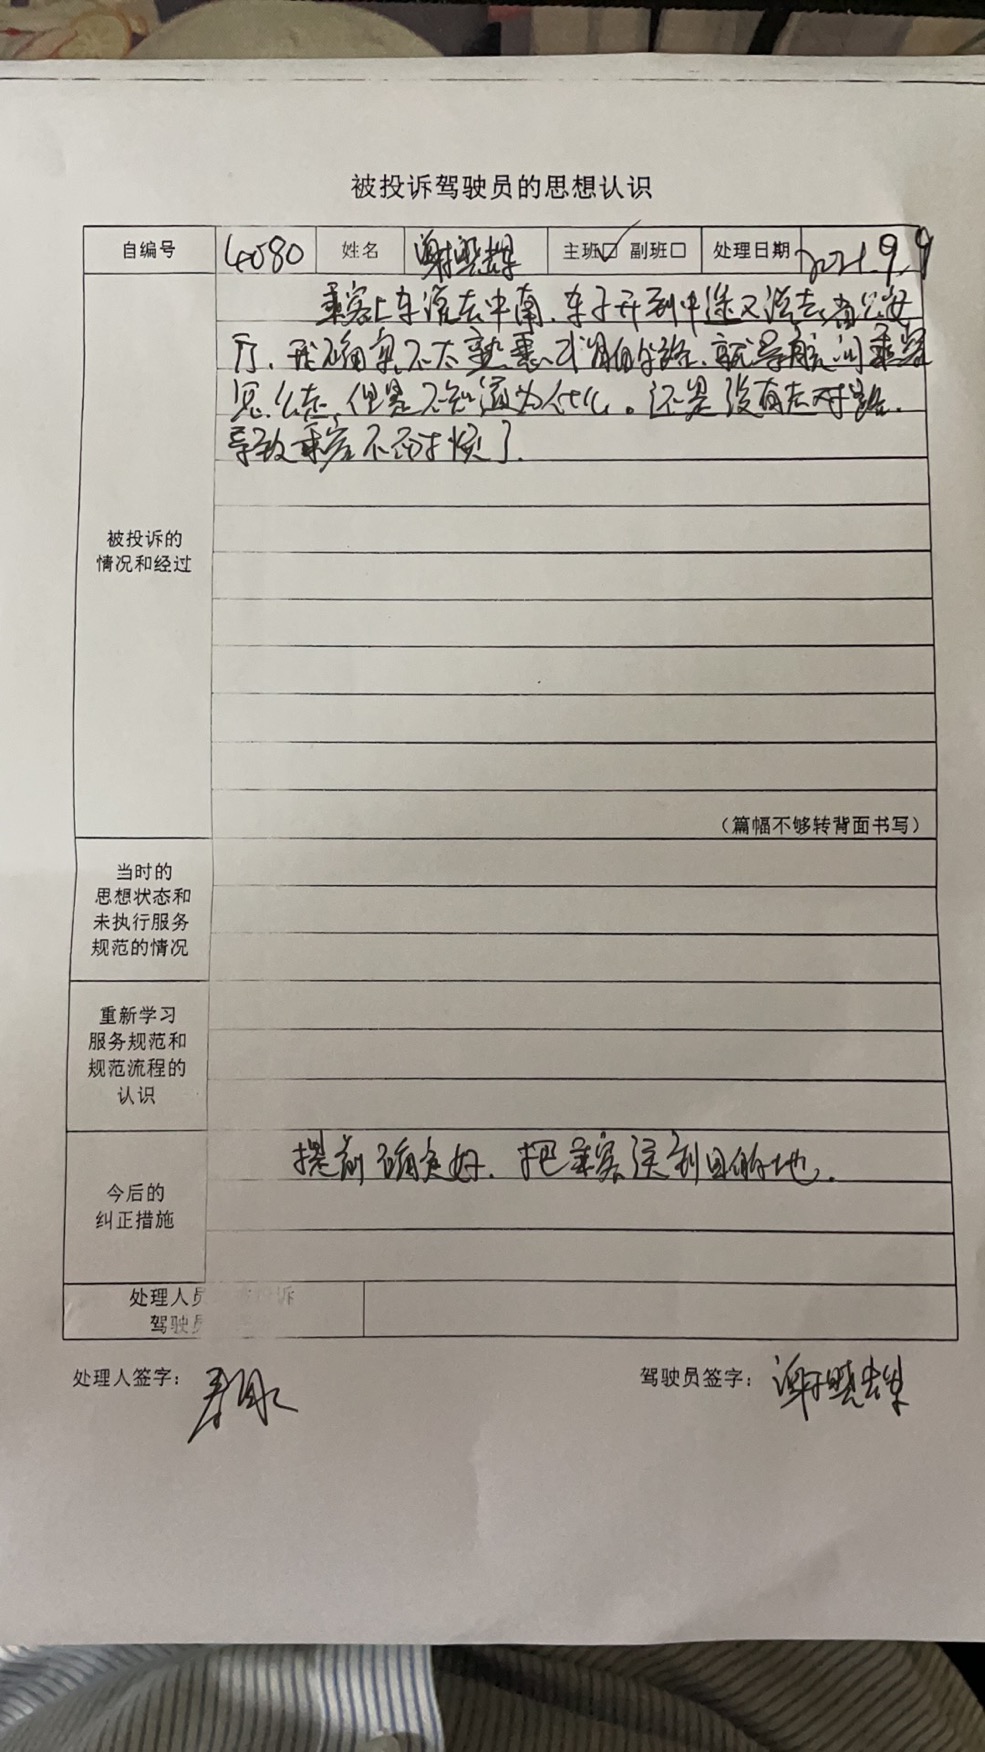 被投诉驾驶员的思想认识
自编号 4080 姓名 谢晓雄 主班☑ 副班□ 处理日期 2021.9.9
乘客上车说去中南、车子开到中途又说去省公安
厅、我确实不太熟悉、不得的路、就导航问乘客
怎么走、但是不知道为什么。还是没有走对路.
导致乘客不耐烦了.
被投诉的
情况和经过
（篇幅不够转背面书写）
当时的
思想状态和
未执行服务
规范的情况
重新学习
服务规范和
规范流程的
认识
提前确定好、把乘客送到目的地.
今后的
纠正措施
处理人员 诉
驾驶员
处理人签字： 驾驶员签字： 谢晓雄